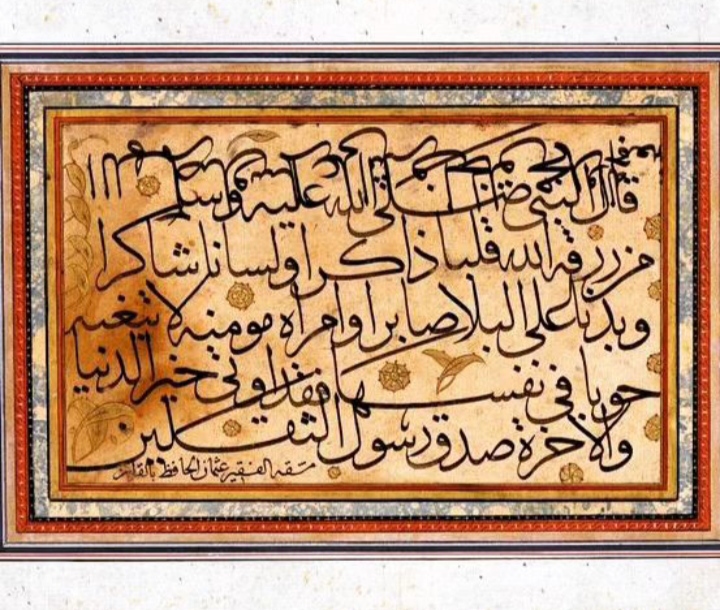 قال النبى صلى الله عليه وسلم
من رزقه الله قلبا ذاكرا ولسانا شاكرا
وبدنا على البلا صابرا وامراه مومنه لا تبغيه
حوبا فى نفسها فقد اوتى خير الدنيا
والاخرة صدق رسول الثقلين
مشقه الفقير عثمان الحافظ